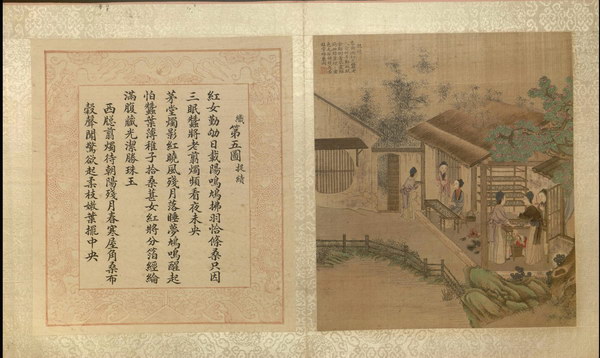 織第五圖捉績
紅女勤劬日載陽鳴鳩拂羽恰條桑只因
三眠蠶將老剪燭頻看夜未央
茅堂燭影紅曉風殘月落睡夢鳩鳴醒起
怕蠶葉薄稚子拾桑葚女紅將分箔經綸
滿腹藏光潔勝珠玉
西牕剪燭待朝陽殘月春寒屋角桑布
穀聲聞驚欲起柔枝嫩葉擺中央